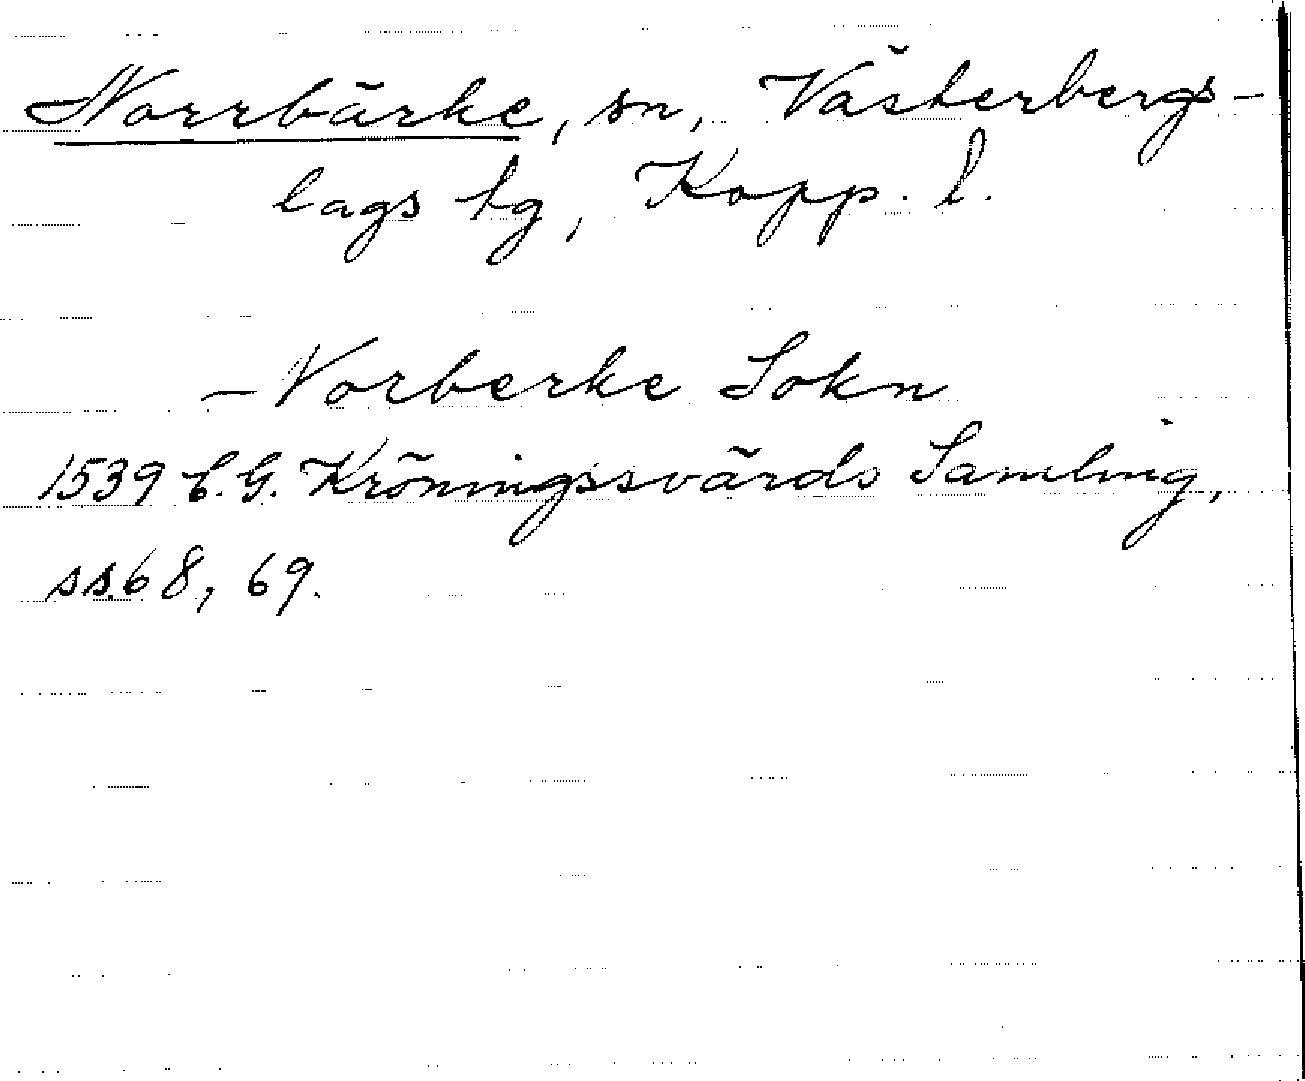 Norrbärke, sn, Västerbergs-
lags tg, Kopp. l.
— Norberke Sokn
1539 C.G. Kröningssvärds Samling,
ss. 68, 69.